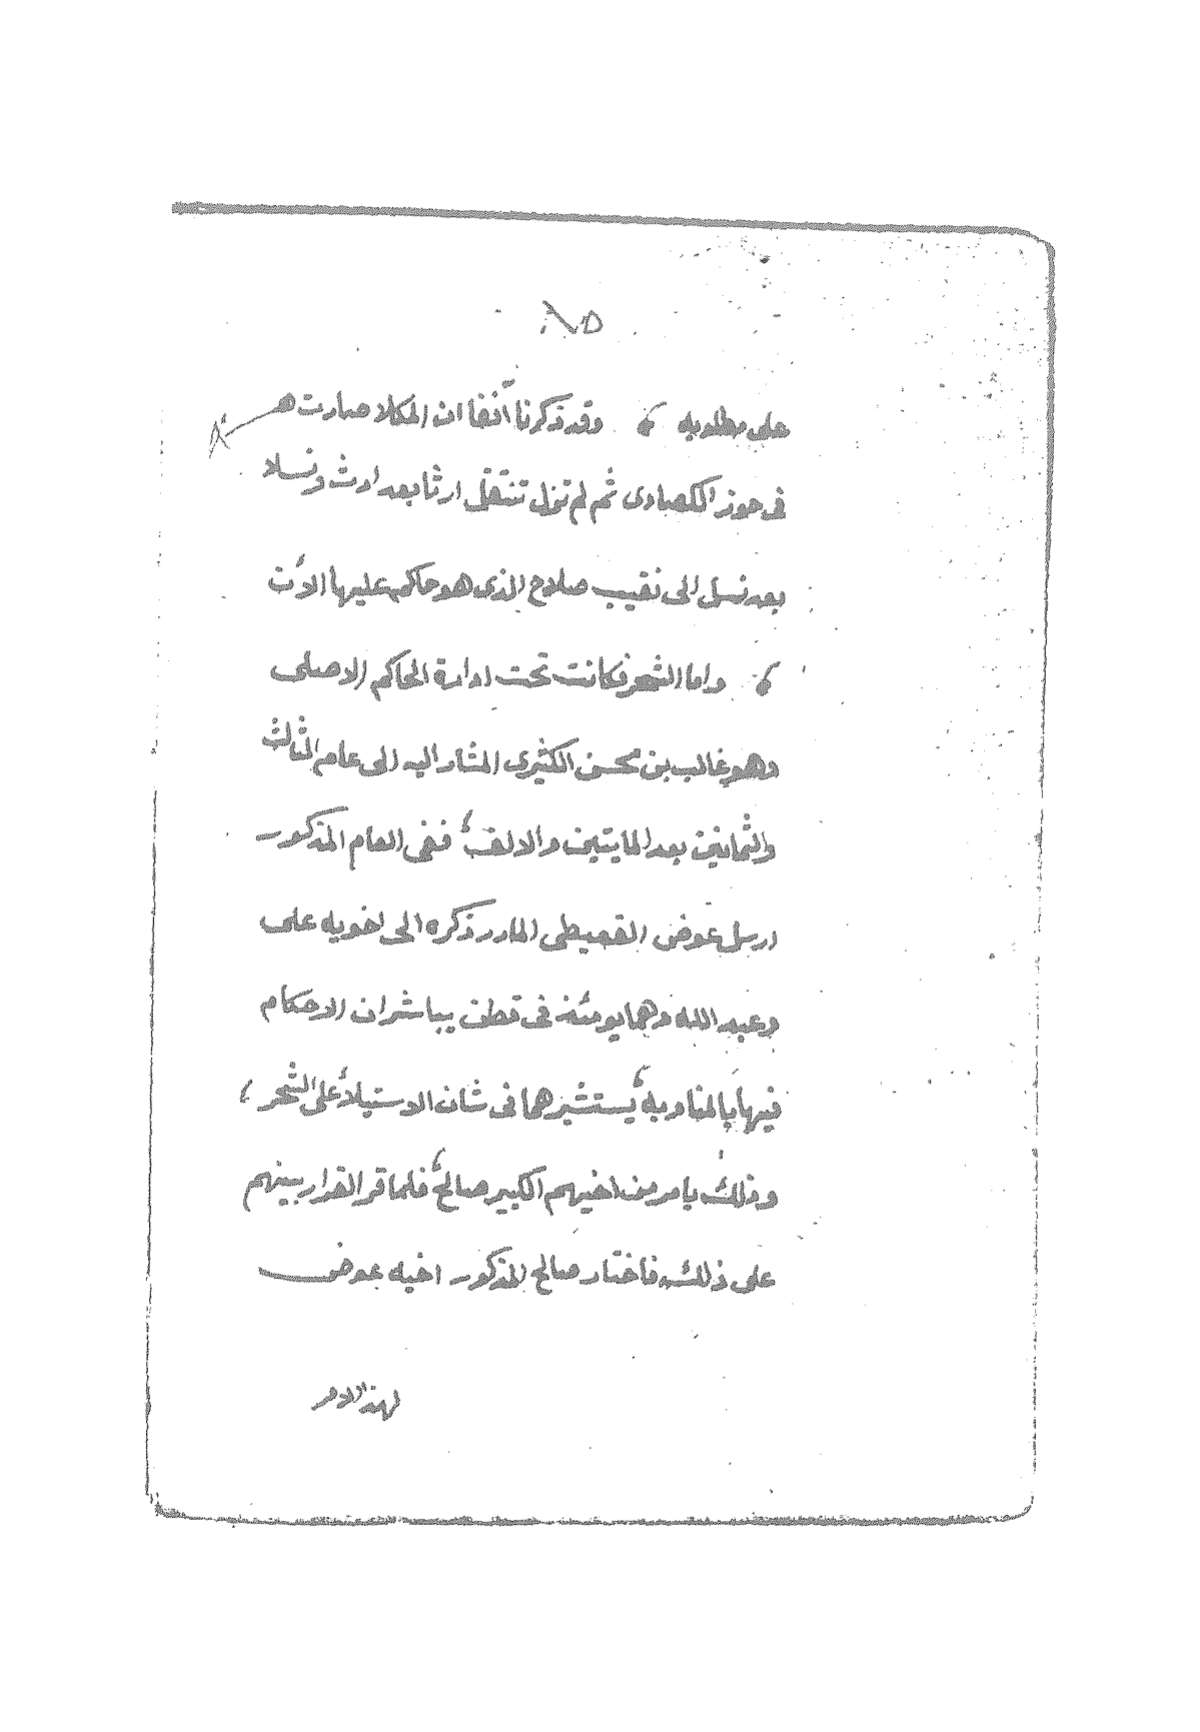 ٨٥
على مطلوبه ، وقد ذكرنا آنفا ان المكلا صارت
فى حوز الكصادى ثم لم تزل تنتقل ارثا بعد ارث ونسلا
بعد نسل الى نقيب صلاح الذى هو حاكم عليها الأن
، واما الشحر فكانت تحت ادارة الحاكم الاصلى
وهو غالب بن محسن الكثيرى المشار اليه الى عام الثالث
والثمانين بعد المايتين والالف، ففى العام المذكور
ارسل عوض القعيطى المار ذكره الى اخويه على
وعبد الله وهما يومئذ فى قطن يباشران الاحكام
فيها بالمناوبه، يستشيرهما فى شان الاستيلأ على الشحر ،
وذلك بامر من اخيهم الكبير صالح، فلما قر القرار بينهم
على ذلك فاختار صالح المذكور اخيه عوض
لهذالامر